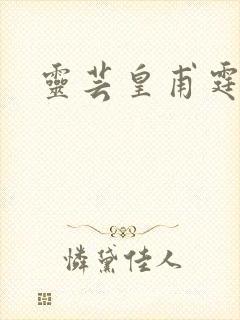 靈芸皇甫霆
憐黛佳人